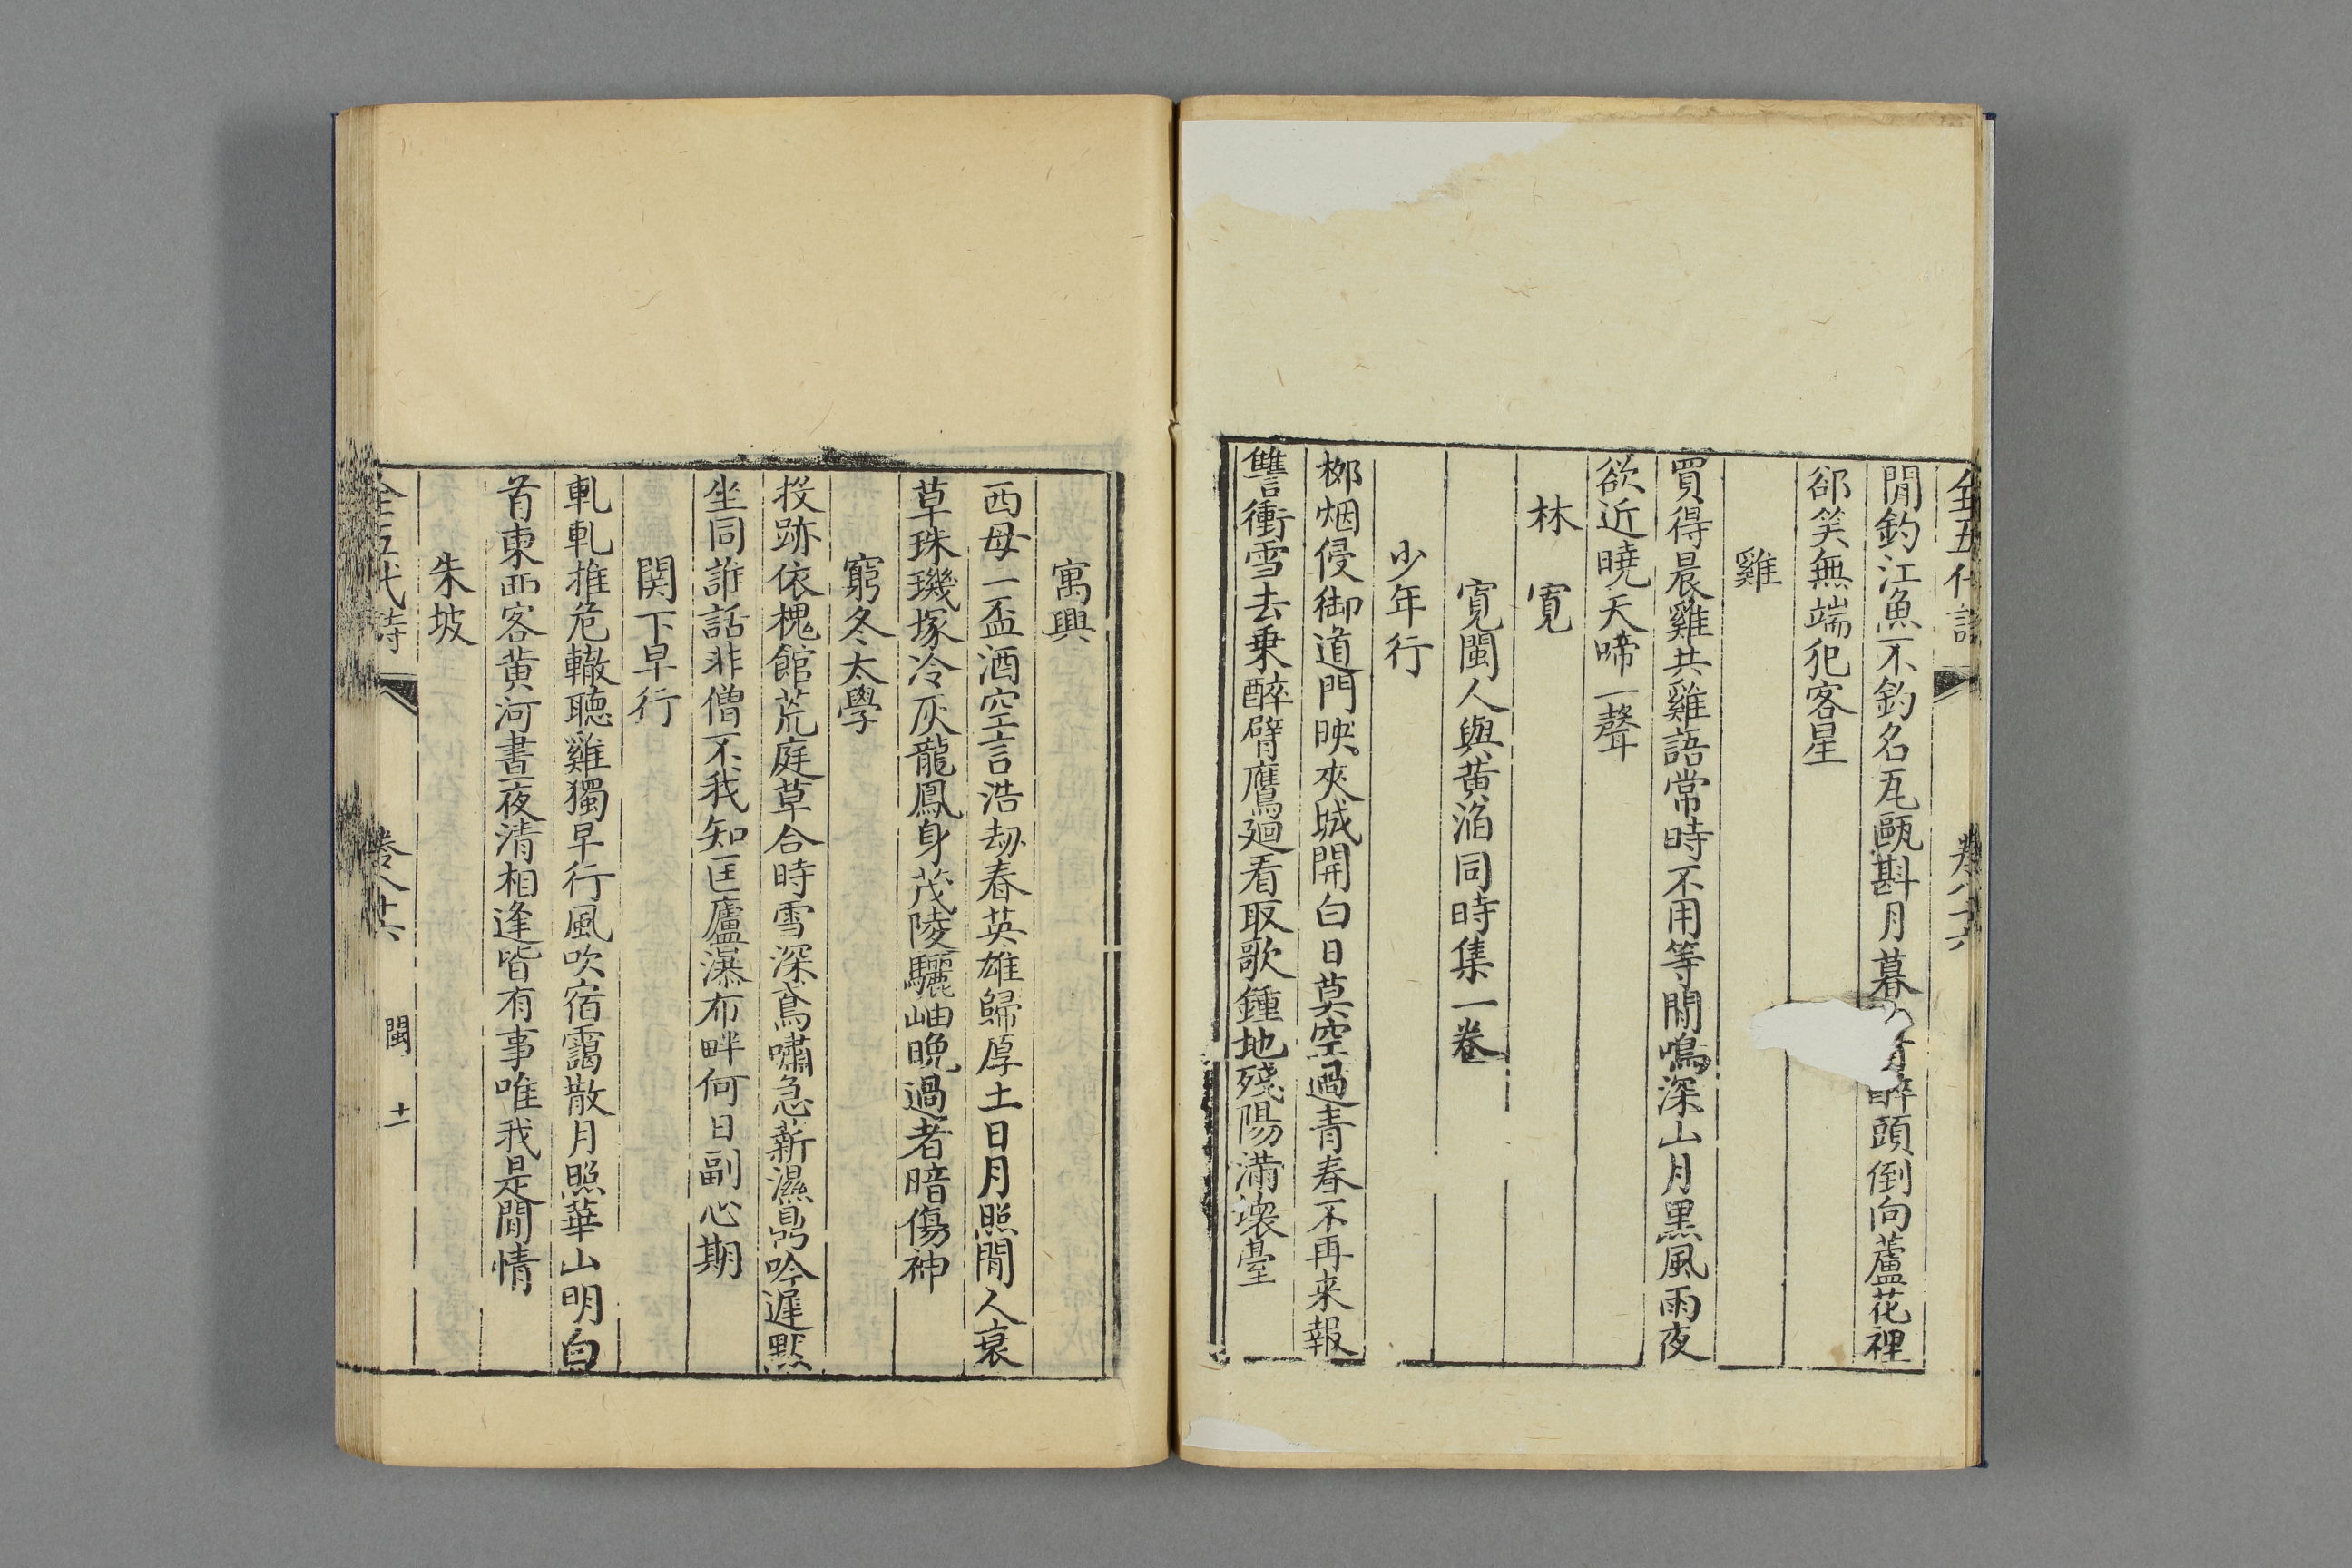 全五代詩 卷八十六
閒釣江魚不釣名瓦甌斟月暮醉頭倒向蘆花裡
郤笑無端犯客星
雞
買得晨雞共雞語常時不用等閒鳴深山月黒風雨夜
欲近曉天啼一聲
林寬
寬閩人與黄滔同時集一卷
少年行
栁烟侵御道門映夾城開白日莫空過青春不再来報
讐衝雪去乗醉臂鷹廻看取歌鍾地殘陽滿壞臺
寓興
西母一盃酒空言浩刼春英雄歸厚土日月照閒人衰
草珠璣塚冷灰龍鳳身茂陵驪岫晚過者暗傷神
窮冬太學
投跡依槐館荒庭草合時雪深鳶嘯急薪濕鼎吟遲默
坐同誰話非僧不我知匡廬瀑布畔何日副心期
関下早行
軋軋推危轍聽雞獨早行風吹宿靄散月照華山明白
首東西客黄河晝夜清相逢皆有事唯我是閒情
朱坡
全五代詩 卷八十六 閩 十一